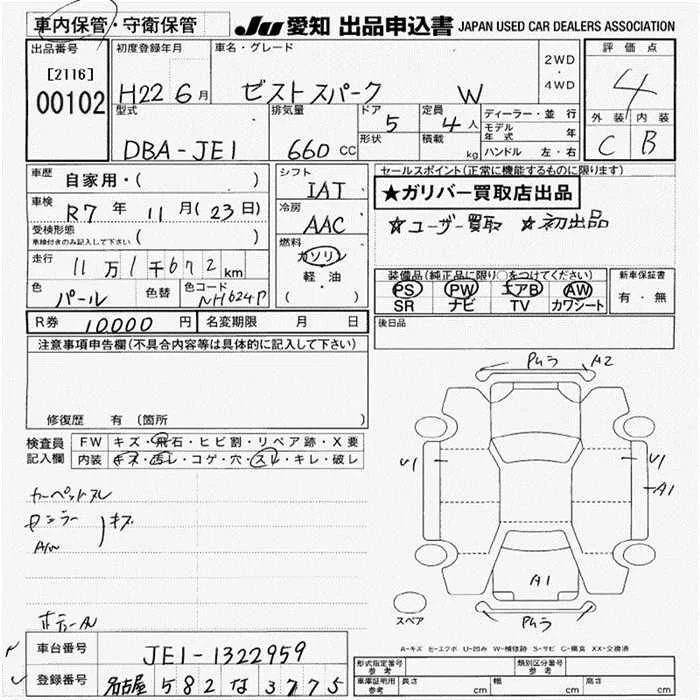 車内保管・守衛保管 JU 愛知 出品申込書 JAPAN USED CAR DEALERS ASSOCIATION
出品番号 初度登録年月 車名・グレード 2WD・4WD 評価点
[2116] 00102 H22 6月 ゼスト スパーク W 4
型式 排気量 ドア 5 定員 4人 ディーラー・並行 外装 内装
形状 積載 kg モデル年式 年
DBA-JE1 660 CC ハンドル 左・右 C B
車歴 自家用・( ) シフト IAT セールスポイント(正常に機能するものに限ります)
車検 R7年 11月(23日) 冷房 AAC ★ガリバー買取店出品
受検形態 車検付きのみ記入して下さい ( ) ☆ユーザー買取 ☆初出品
走行 11万1千672km 燃料 ガソリン 軽・油 ( ・ )
色 パール 色替 色コード NH624P
装備品(純正品に限り○をつけてください) 新車保証書
PS PW エアB AW 有・無
SR ナビ TV カワシート
R券 10,000円 名変期限 月 日 後日品
注意事項申告欄(不具合内容等は具体的に記入して下さい)
修復歴 有 (箇所 )
検査員記入欄 FW キズ・飛石・ヒビ割・リペア跡・X要
内装 キズ・汚レ・コゲ・穴・スレ・キレ・破レ
カーペットスレ
キズ
A/W
PMラ A2
U1 U1
A1
A1
PMラ
スペア
A-キズ E-エクボ U-凹み W-補修跡 S-サビ C-腐食 XX-交換済
車台番号 JE1-1322959
登録番号 名古屋 582 な 3775
形式指定番号 参考 類別区分番号 参考
車庫証明用 参考 長さ cm 幅 cm 高さ cm